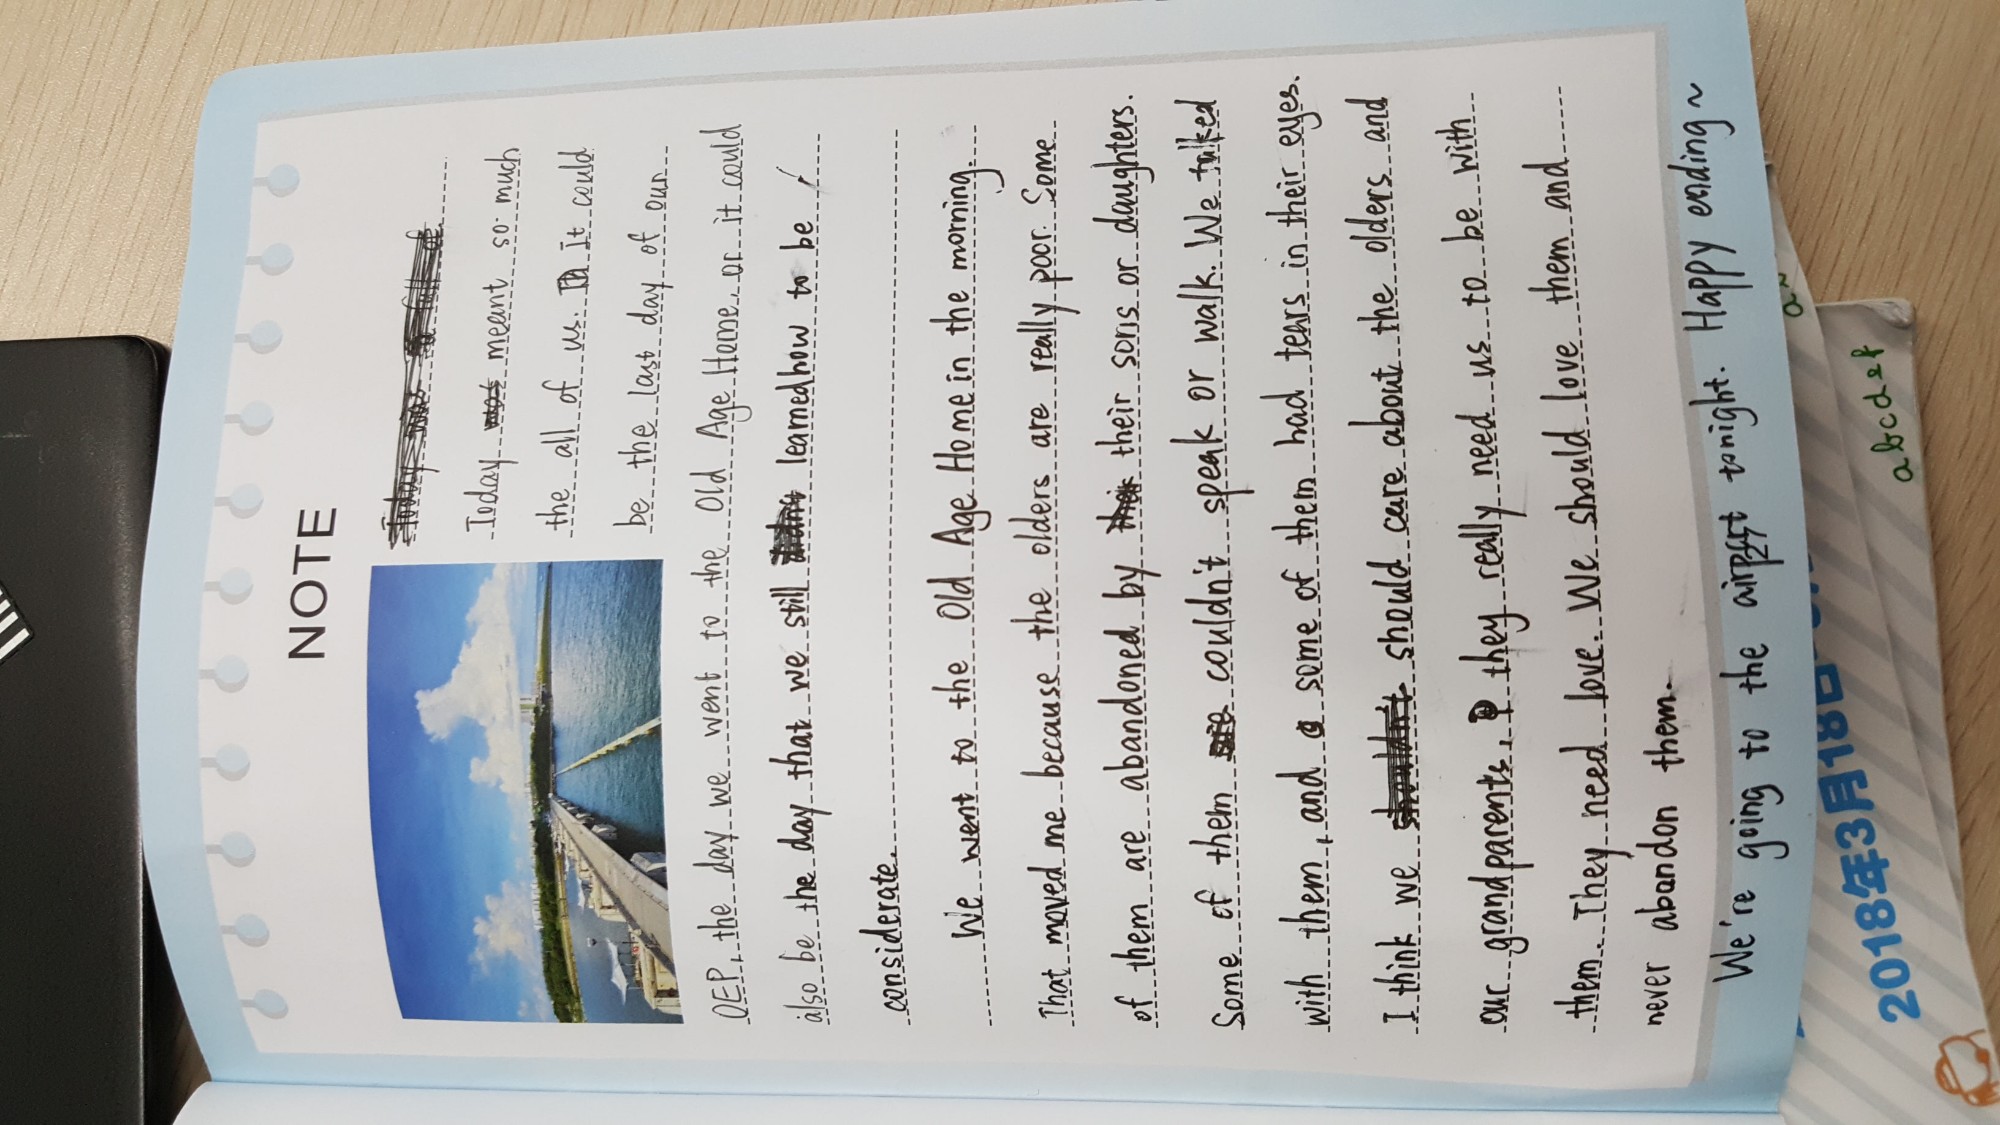 NOTE
Today meant so much
the all of us. It could
be the last day of our
OEP, the day we went to the Old Age Home, or it could
also be the day that we still learned how to be
considerate.
We went to the Old Age Home in the morning.
That moved me because the olders are really poor. Some
of them are abandoned by their sons or daughters.
Some of them couldn't speak or walk. We talked
with them, and some of them had tears in their eyes.
I think we should care about the olders and
our grandparents, they really need us to be with
them. They need love. We should love them and
never abandon them.
We're going to the airport tonight. Happy ending~
2018年3月18日
abcdef